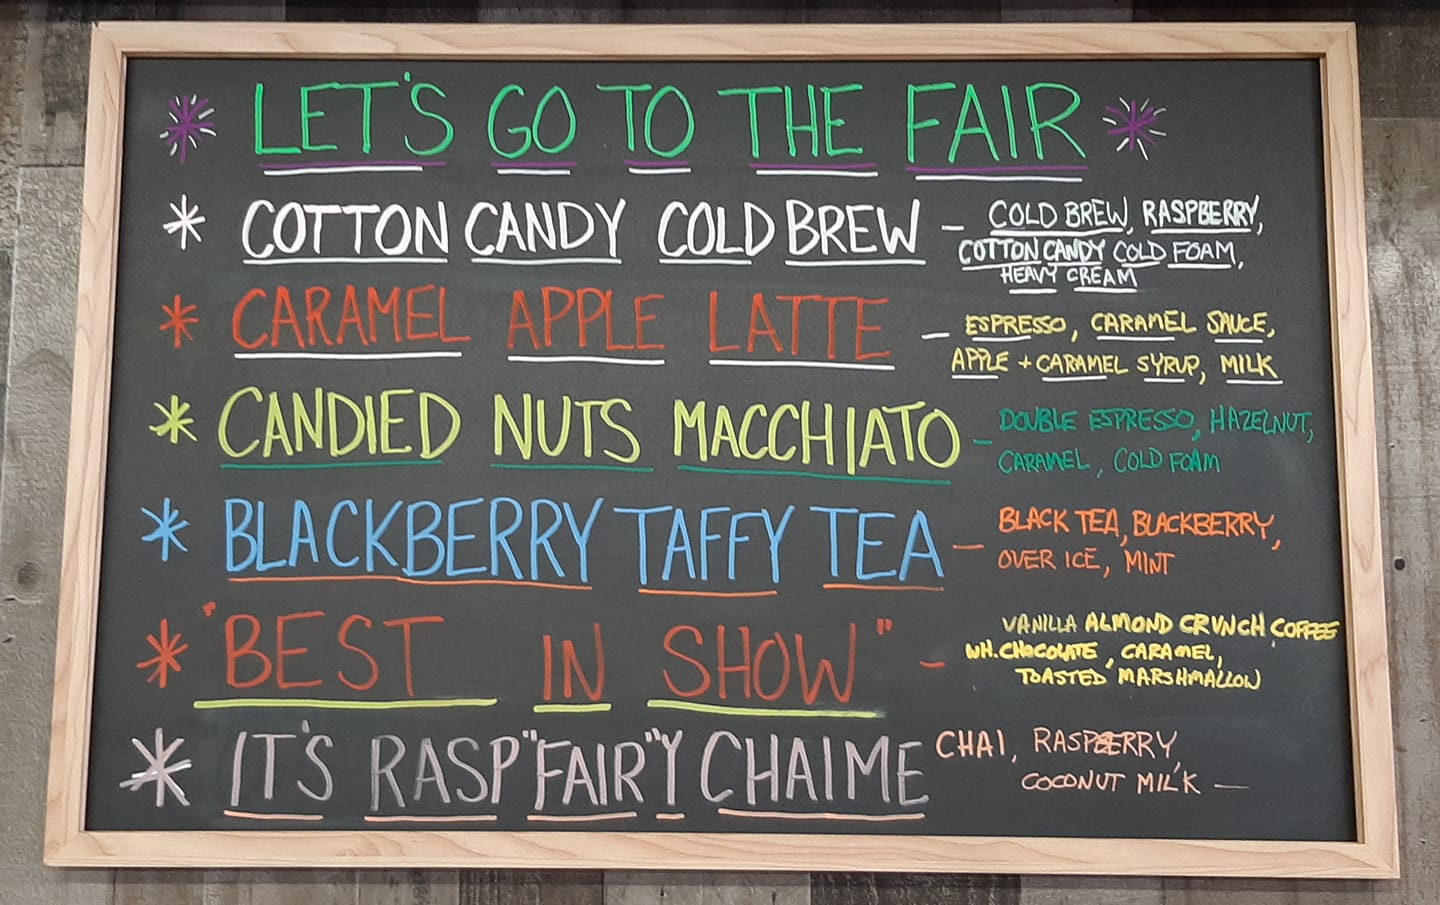 LET'S GO TO THE FAIR
* COTTON CANDY COLD BREW - COLD BREW, RASPBERRY,
COTTON CANDY COLD FOAM,
HEAVY CREAM
* CARAMEL APPLE LATTE - ESPRESSO, CARAMEL SAUCE,
APPLE + CARAMEL SYRUP, MILK
* CANDIED NUTS MACCHIATO - DOUBLE ESPRESSO, HAZELNUT,
CARAMEL, COLD FOAM
* BLACKBERRY TAFFY TEA - BLACK TEA, BLACKBERRY,
OVER ICE, MINT
* "BEST IN SHOW" - VANILLA ALMOND CRUNCH COFFEE
WH. CHOCOLATE, CARAMEL,
TOASTED MARSHMALLOW
* IT'S RASP"FAIR"Y CHAIME CHAI, RASPBERRY,
COCONUT MILK -